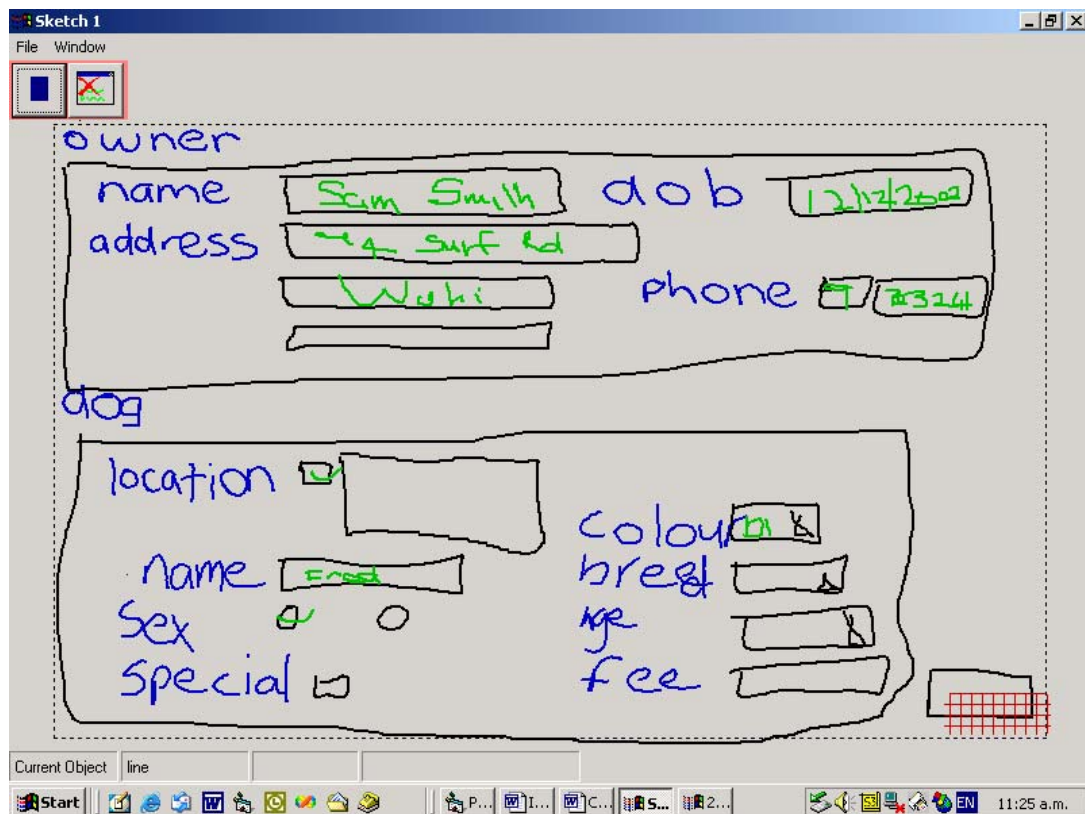 Sketch 1
File Window
owner
name Sam Smith dob 12/12/2002
address 4 Surf Rd
phone 324
dog
location
colour
name Fred breed
Sex Age
Special fee
Current Object line
Start P... I... C... S... 2... EN 11:25 a.m.